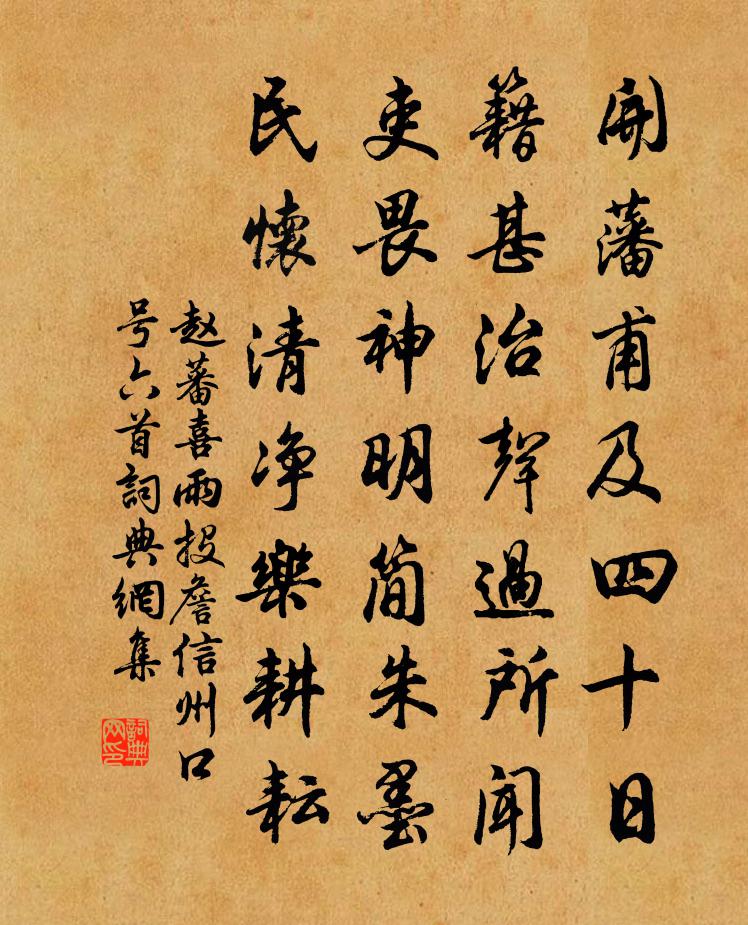 開藩甫及四十日
籍甚治聲過所聞
吏畏神明簡朱墨
民懷清净樂耕耘
赵蕃喜雨投詹信州口
号六首詞典網集
詞典网印